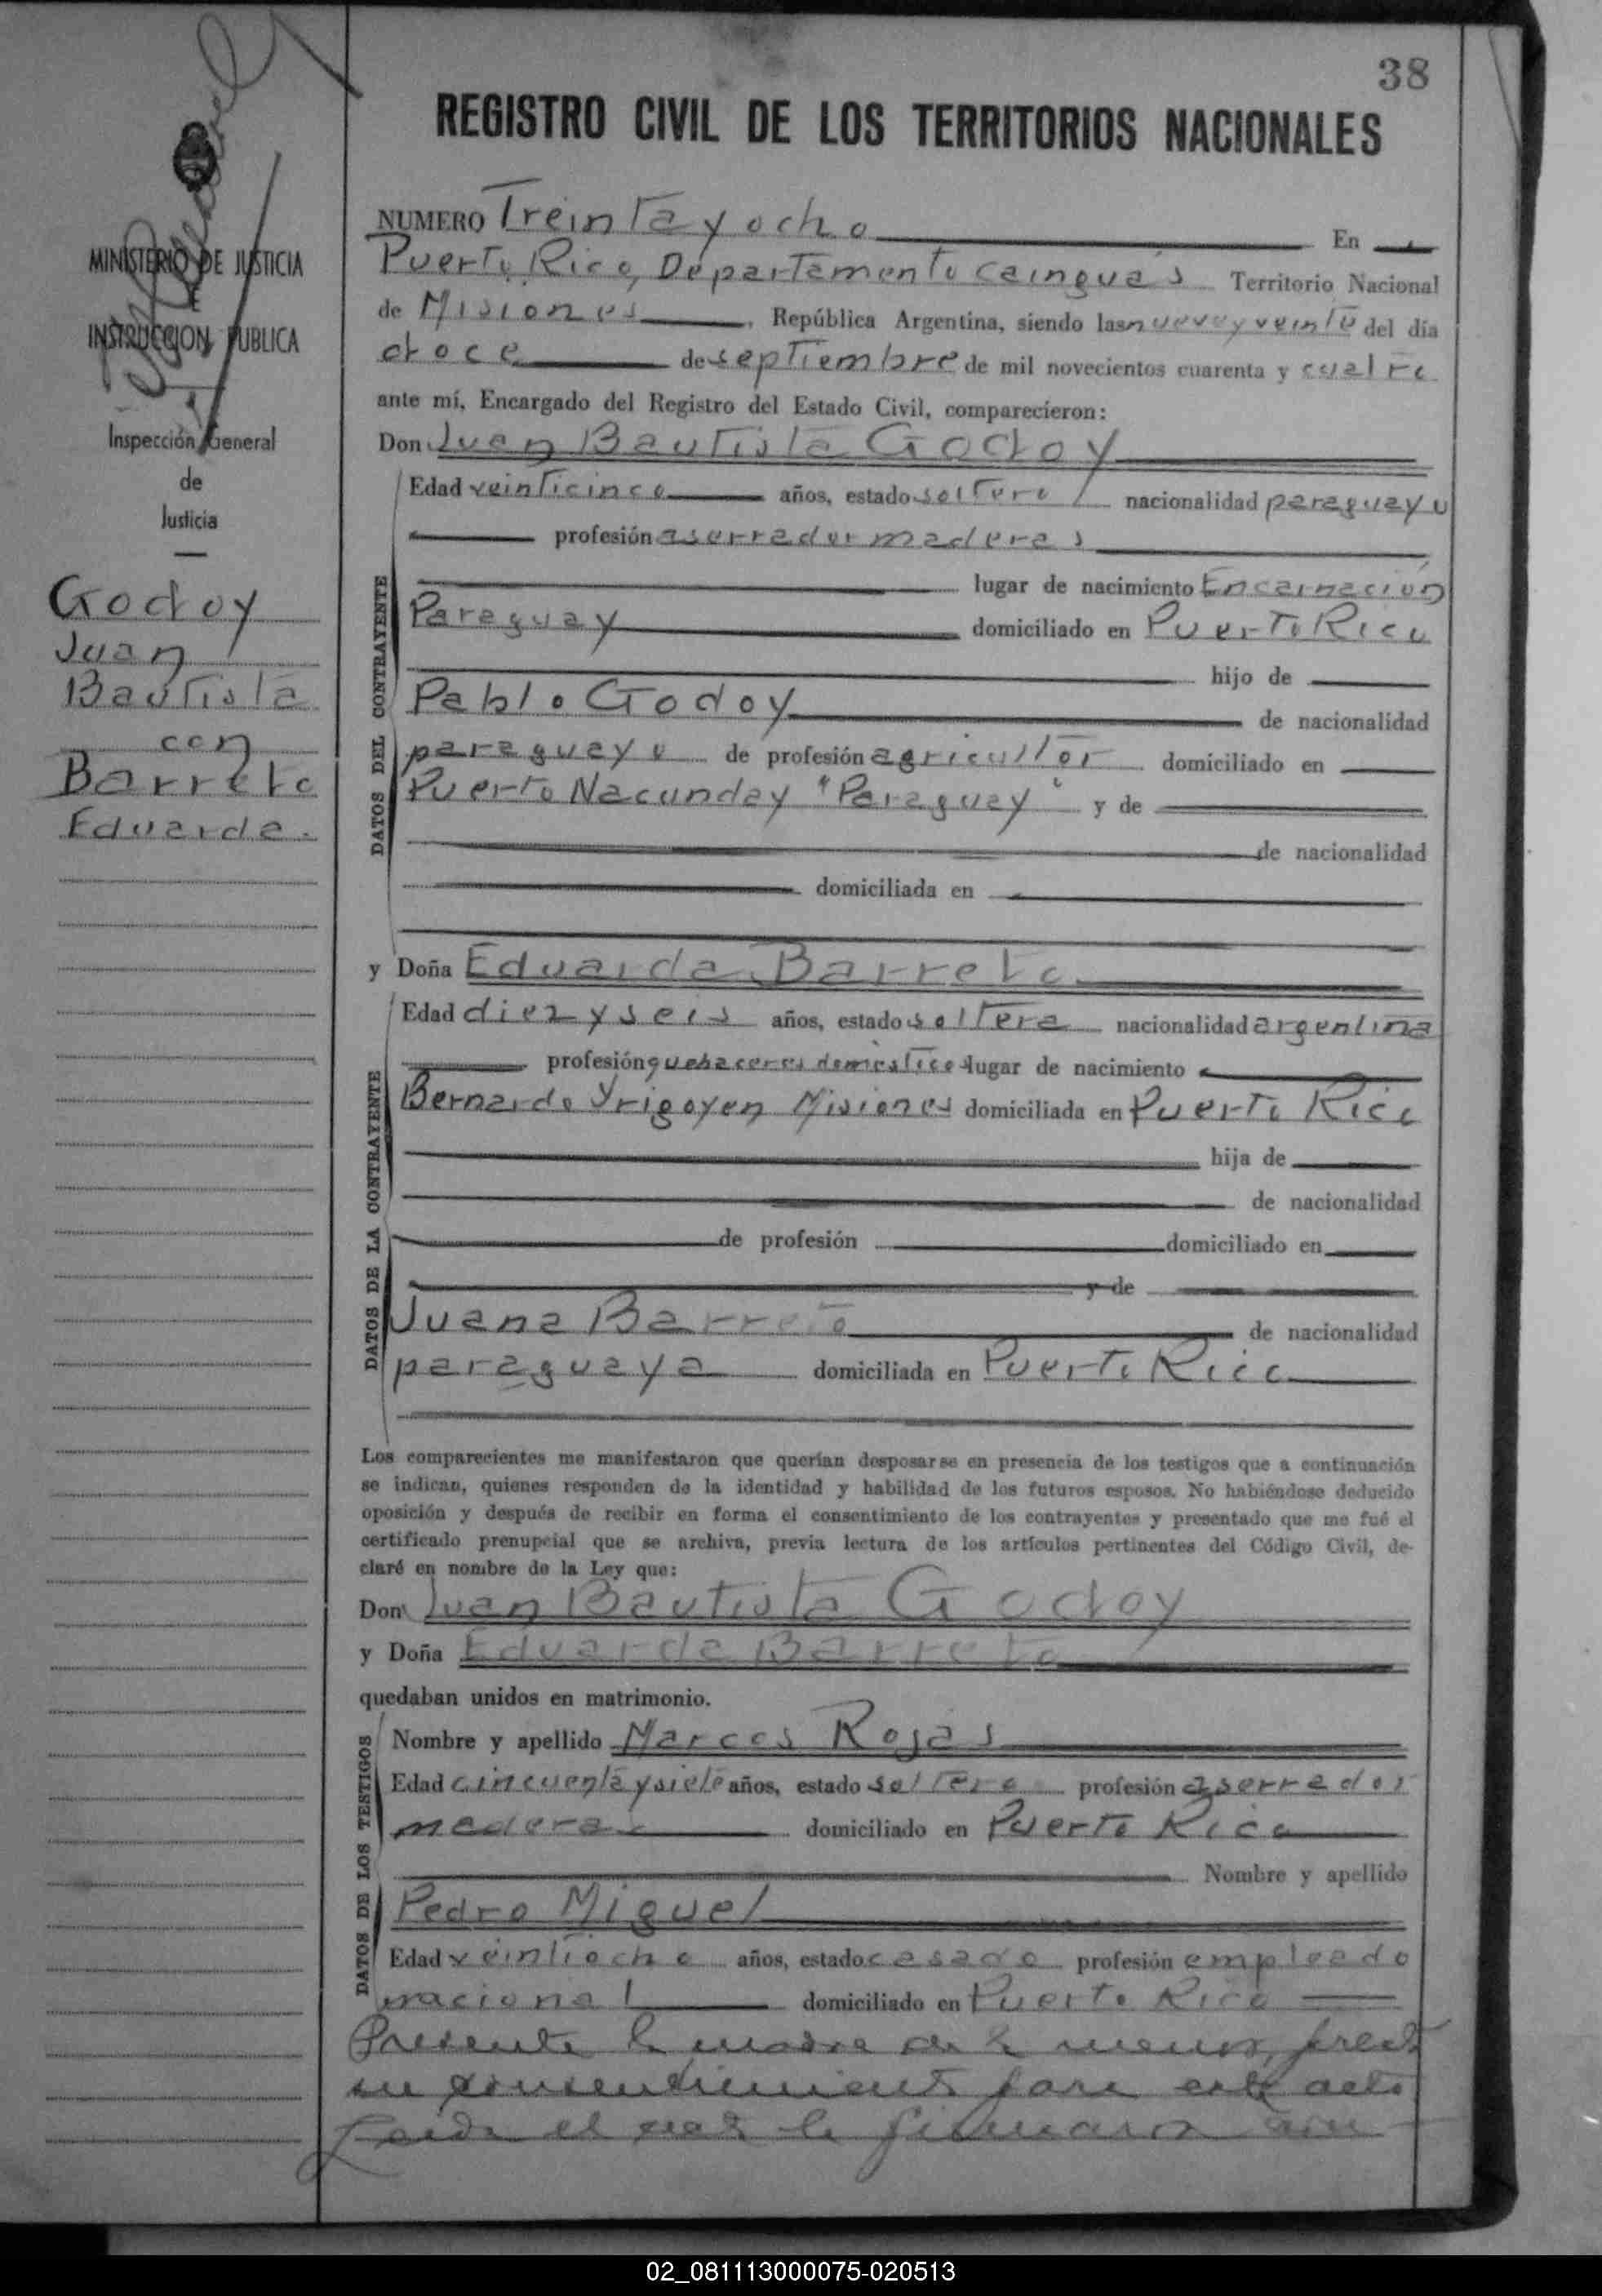 38
REGISTRO CIVIL DE LOS TERRITORIOS NACIONALES
MINISTERIO DE JUSTICIA
E
INSTRUCCION PUBLICA
Inspección General
de
Justicia
Godoy
Juan
Bautista
con
Barreto
Eduarda.
NUMERO Treinta y ocho En
Puerto Rico, Departamento Cainguás Territorio Nacional
de Misiones, República Argentina, siendo las nueve y veinte del día
doce de septiembre de mil novecientos cuarenta y cuatro
ante mí, Encargado del Registro del Estado Civil, comparecieron:
Don Juan Bautista Godoy
DATOS DEL CONTRAYENTE
Edad veinticinco años, estado soltero nacionalidad paraguayo
profesión aserrador maderas
lugar de nacimiento Encarnación
Paraguay domiciliado en Puerto Rico
hijo de
Pablo Godoy de nacionalidad
paraguayo de profesión agricultor domiciliado en
Puerto Nacunday "Paraguay" y de
de nacionalidad
domiciliada en
y Doña Eduarda Barreto
DATOS DE LA CONTRAYENTE
Edad diez y seis años, estado soltera nacionalidad argentina
profesión quehaceres domésticos lugar de nacimiento
Bernardo Yrigoyen Misiones domiciliada en Puerto Rico
hija de
de nacionalidad
de profesión domiciliado en
y de
Juana Barreto de nacionalidad
paraguaya domiciliada en Puerto Rico
Los comparecientes me manifestaron que querían desposarse en presencia de los testigos que a continuación
se indican, quienes responden de la identidad y habilidad de los futuros esposos. No habiéndose deducido
oposición y después de recibir en forma el consentimiento de los contrayentes y presentado que me fué el
certificado prenupcial que se archiva, previa lectura de los artículos pertinentes del Código Civil, de-
claré en nombre de la Ley que:
Don Juan Bautista Godoy
y Doña Eduarda Barreto
quedaban unidos en matrimonio.
DATOS DE LOS TESTIGOS
Nombre y apellido Marcos Rojas
Edad cincuenta y siete años, estado soltero profesión aserrador
maderas domiciliado en Puerto Rico
Nombre y apellido
Pedro Miguel
Edad veintiocho años, estado casado profesión empleado
nacional domiciliado en Puerto Rico
Presente la madre de la menor, presta
su consentimiento para este acto
Leida el acta la firmaron con
02_081113000075-020513